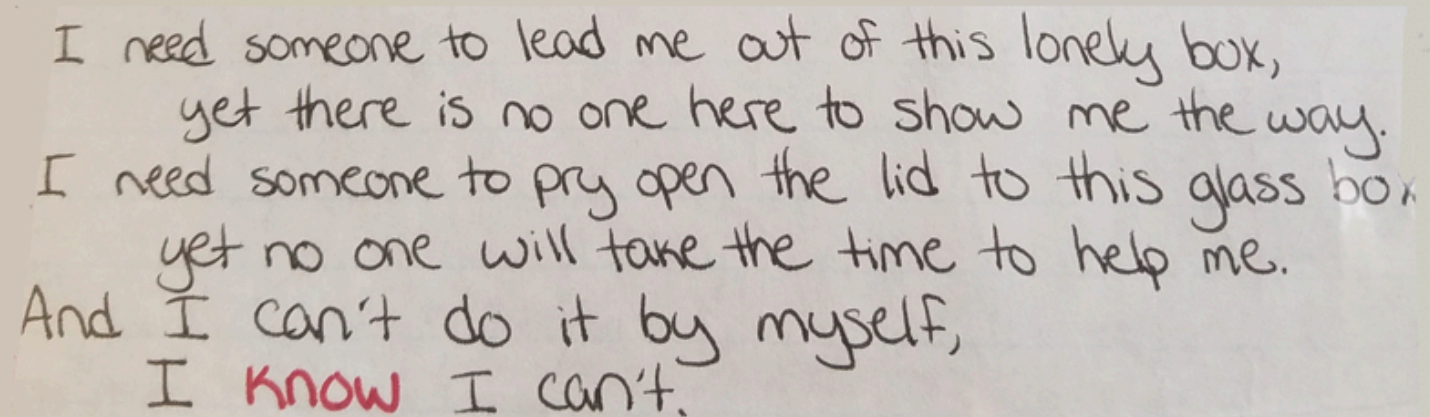 I need someone to lead me out of this lonely box,
yet there is no one here to show me the way.
I need someone to pry open the lid to this glass box
yet no one will take the time to help me.
And I can't do it by myself,
I know I can't.